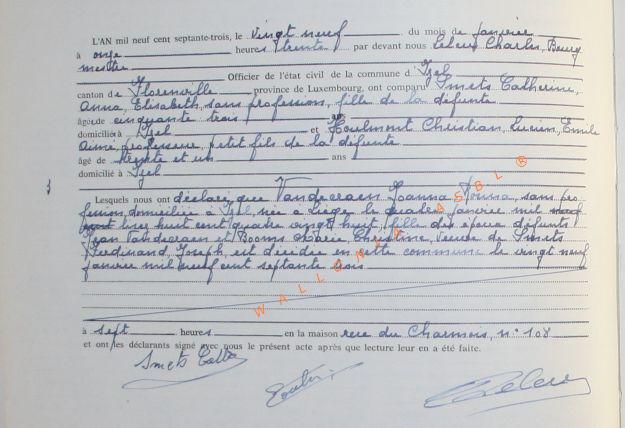 L'AN mil neuf cent septante-trois, le vingt neuf du mois de janvier
à onze heures trente par devant nous Leleux Charles, Bourg
mestre Officier de l'état civil de la commune d' Izel
canton de Florenville province de Luxembourg, ont comparu Smets Catherine,
Anna, Elisabeth, sans profession, fille de la défunte
âgée de cinquante trois ans
domiciliée à Izel et Houlmont Christian, Lucien, Emile
Aimé, professeur, petit fils de la défunte
âgé de trente et un ans
domicilié à Izel
Lesquels nous ont déclaré que Vandecraen Joanna sans pro
fession, domiciliée à Izel, née à Liège, le quatre janvier mil
huit cent quatre vingt huit, fille des époux défunts
Vandecraen et Booms Marie Christine, veuve de Smets
Ferdinand, Joseph, est décédée en cette commune le vingt neuf
janvier mil neuf cent septante trois
à sept heures en la maison rue du Charmois, n° 108
et ont les déclarants signé avec nous le présent acte après que lecture leur en a été faite.
Smets Cath
WALLONIA ASBL ®